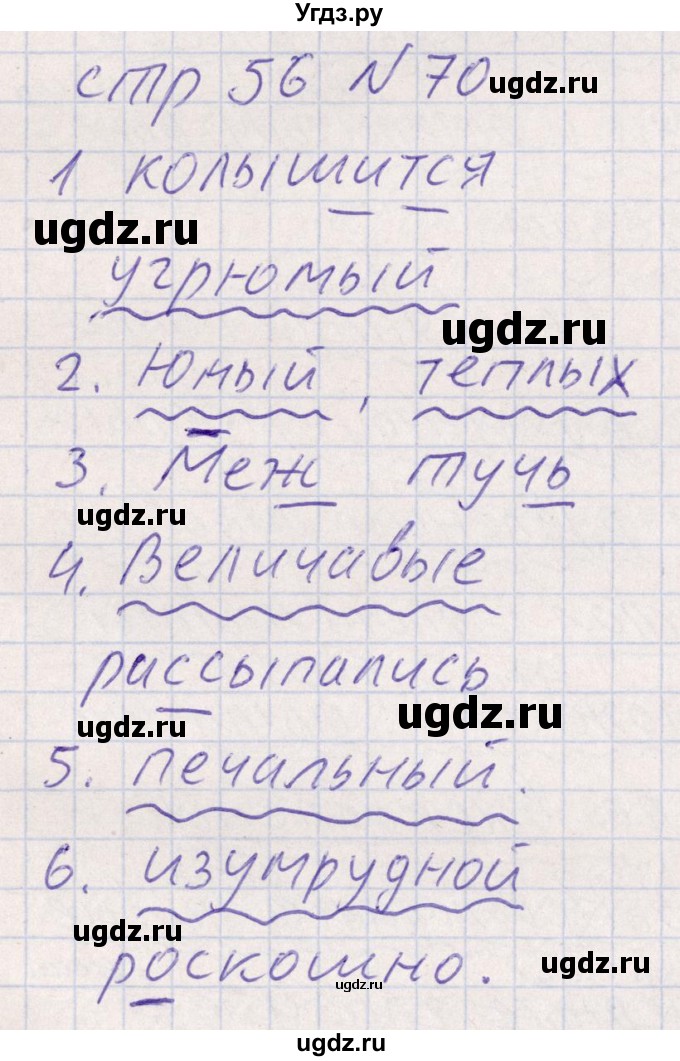 Угдз.ру
стр 56 N 70
ugdz.ru
1 колышится
ugdz.ru
угрюмый
ugdz.ru
2. Юный, теплых
3. Меж тучь
ugdz.ru
4. Величавые
рассыпались
ugdz.ru
ugdz.ru
5. печальный.
6. изумрудной
ugdz.ru
роскошно.
ugdz.ru
ugdz.ru
ugdz.ru